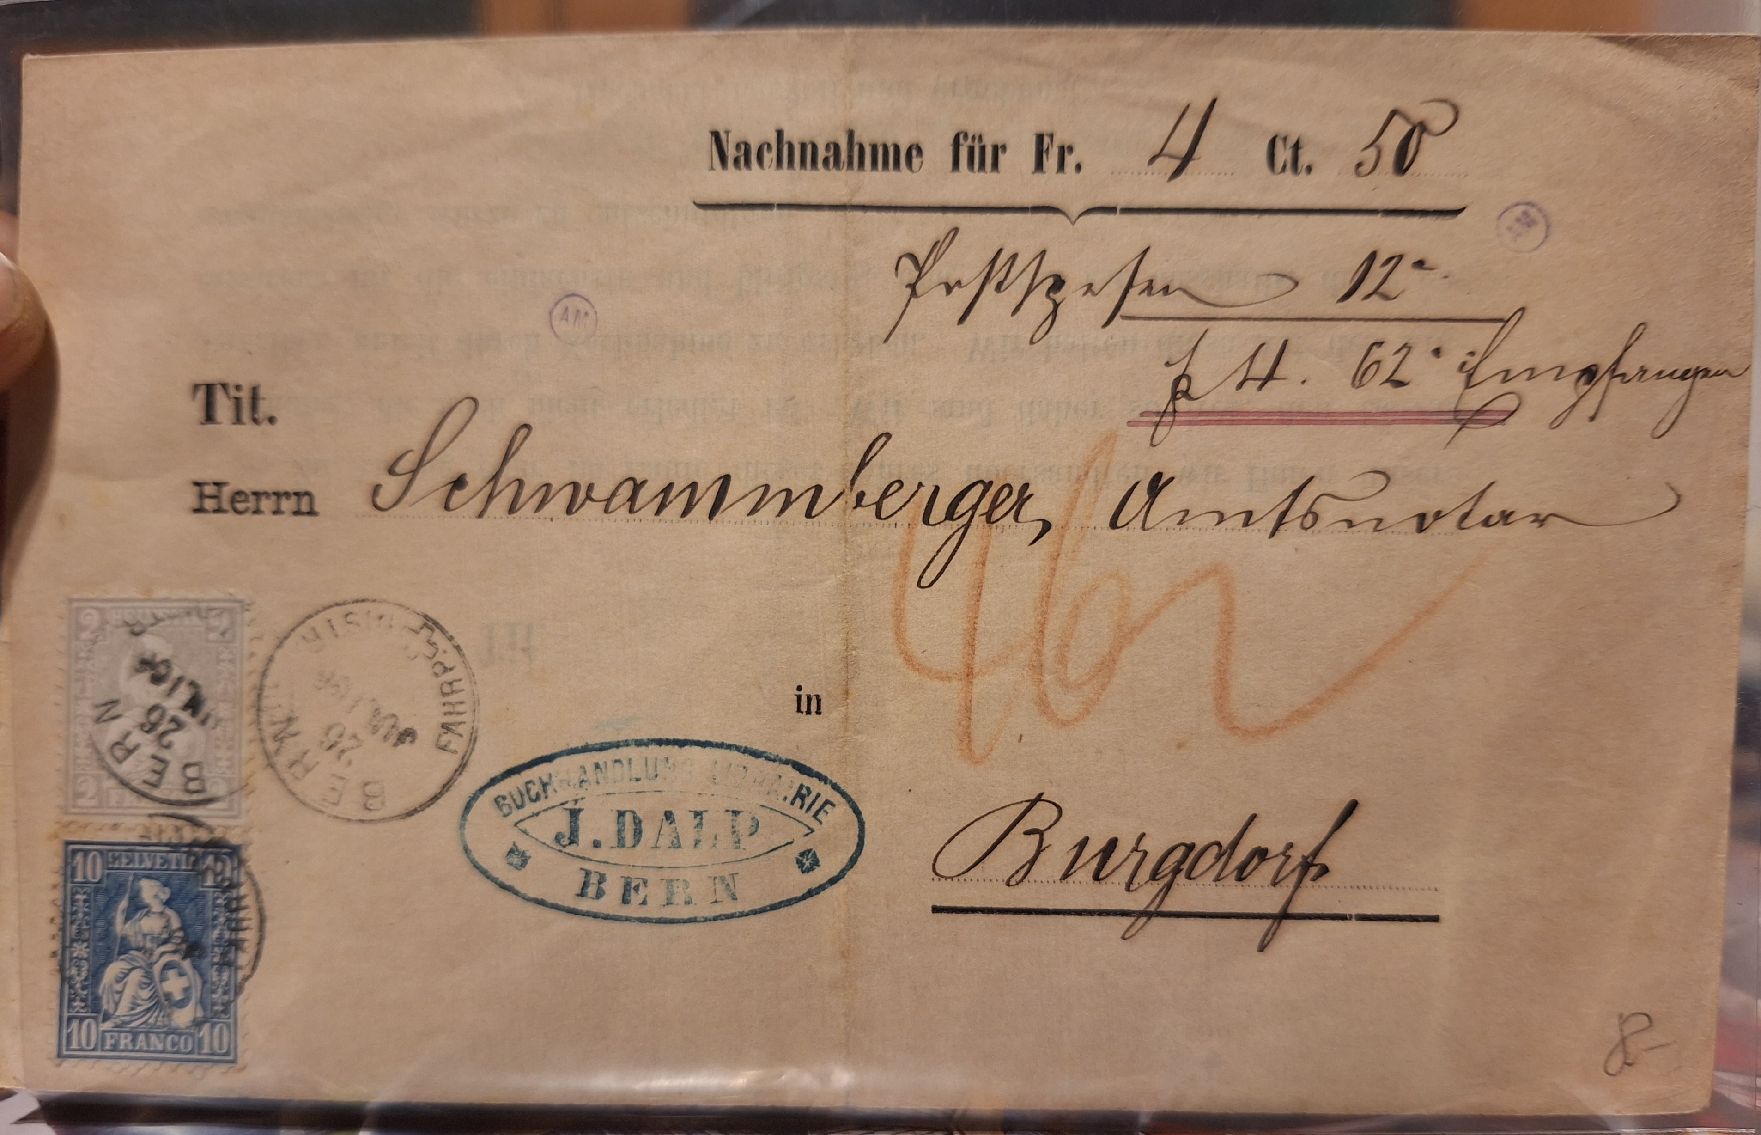 Nachnahme für Fr. 4 Ct. 50
Postspesen 12
AM
f 4. 62 Empfangen
Tit.
Herrn Schwammberger, Amtsnotar
462
in
Burgdorf
2 HELVETIA 2
BERN
26
2 2
BERN
26
FAHRPOST
BUCHHANDLUNG LIBRAIRIE
J. DALP
BERN
10 HELVETIA 10
10 FRANCO 10
8-